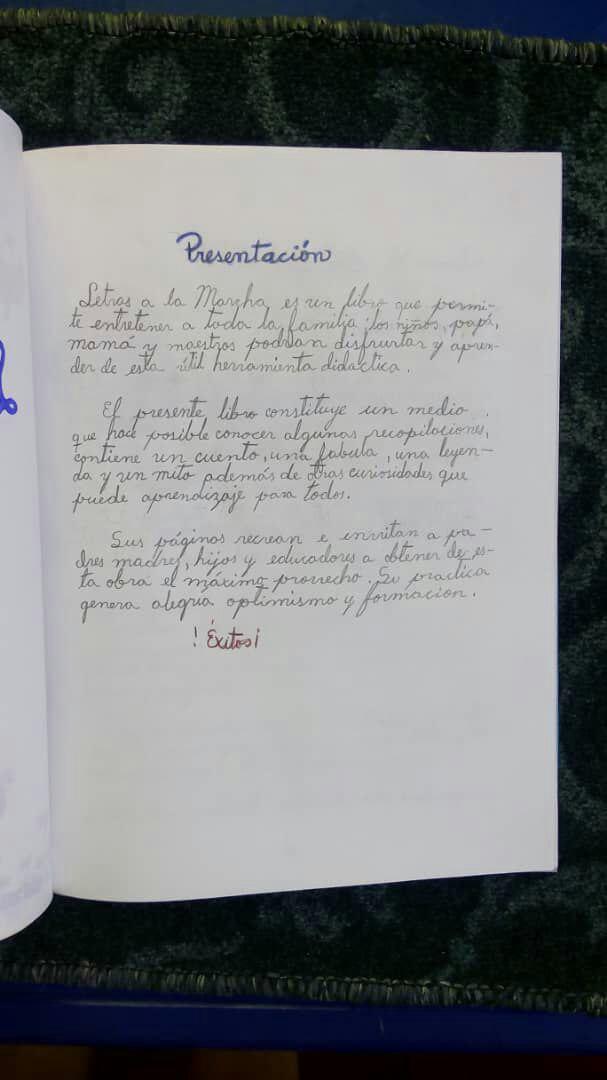 Presentación
Letras a la Marcha, es un libro que permi-
te entretener a toda la familia; los niños, papá,
mamá y maestros podrían disfruntar y apren-
der de esta útil herramienta didactica.
El presente libro constituye un medio
que hace posible conocer algunas recopilaciones,
contiene un cuento, una fabula, una leyen-
da y un mito además de otras curiosidades que
puede aprendizaje para todos.
Sus páginas recrean e invitan a pa-
dres madres, hijos y educadores a obtener de es-
ta obra el máximo provecho. Su practica
genera alegria optimismo y formacion.
! Éxitos¡